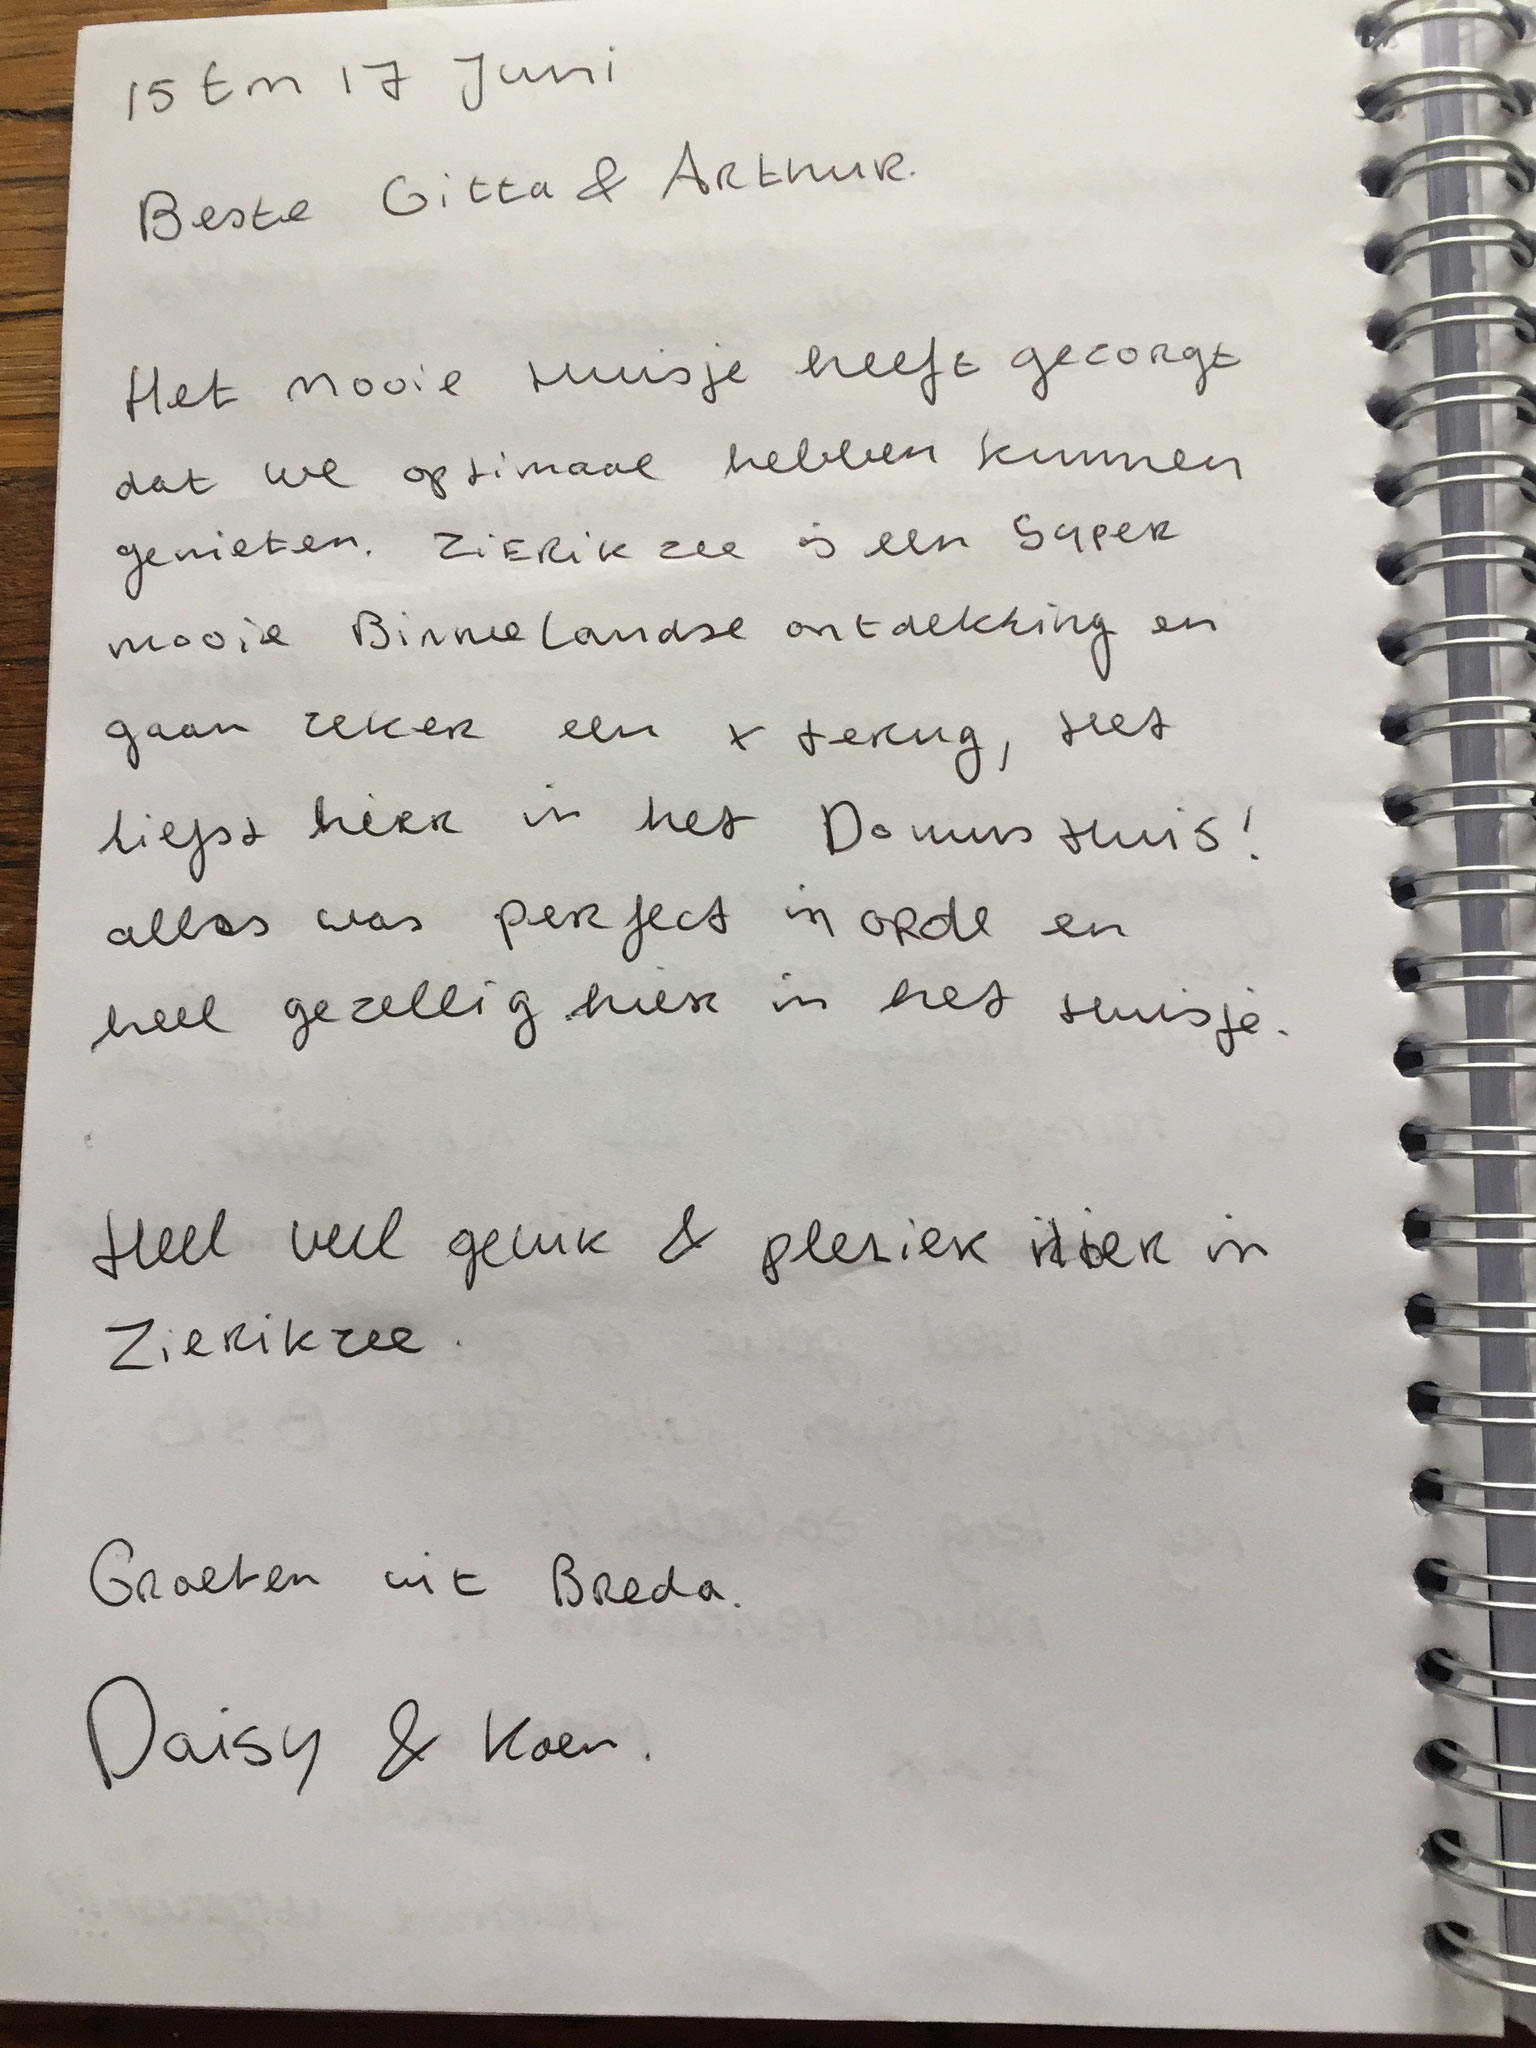 15 tm 17 Juni
Beste Gitta & Arthur.
Het mooie Huisje heeft gezorgt
dat we optimaal hebben kunnen
genieten. Zierikzee is een super
mooie Binnelandse ontdekking en
gaan zeker een x terug, Het
liefst hier in het Domus Huis!
alles was perfect in orde en
heel gezellig hier in het Huisje.
Heel veel geluk & plezier hier in
Zierikzee.
Groeten uit Breda.
Daisy & Koen.